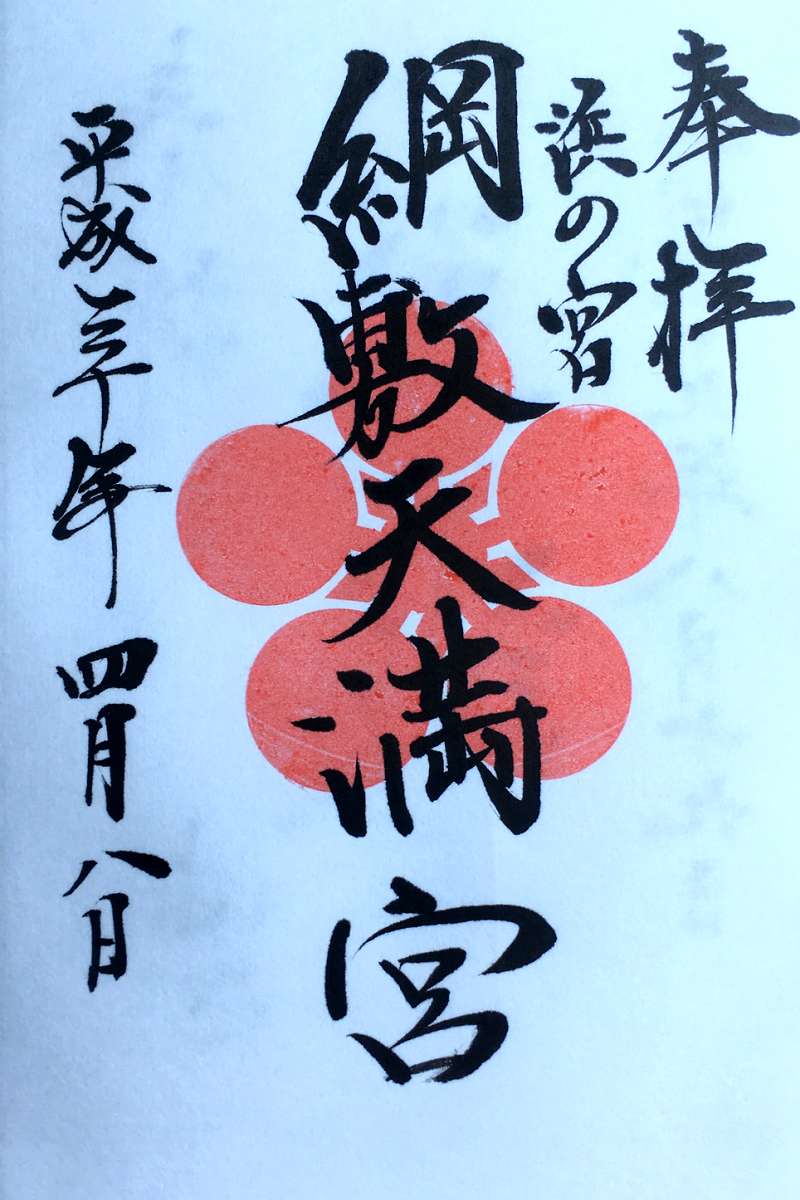 奉拝
浜の宮
綱敷天満宮
平成三十年四月八日